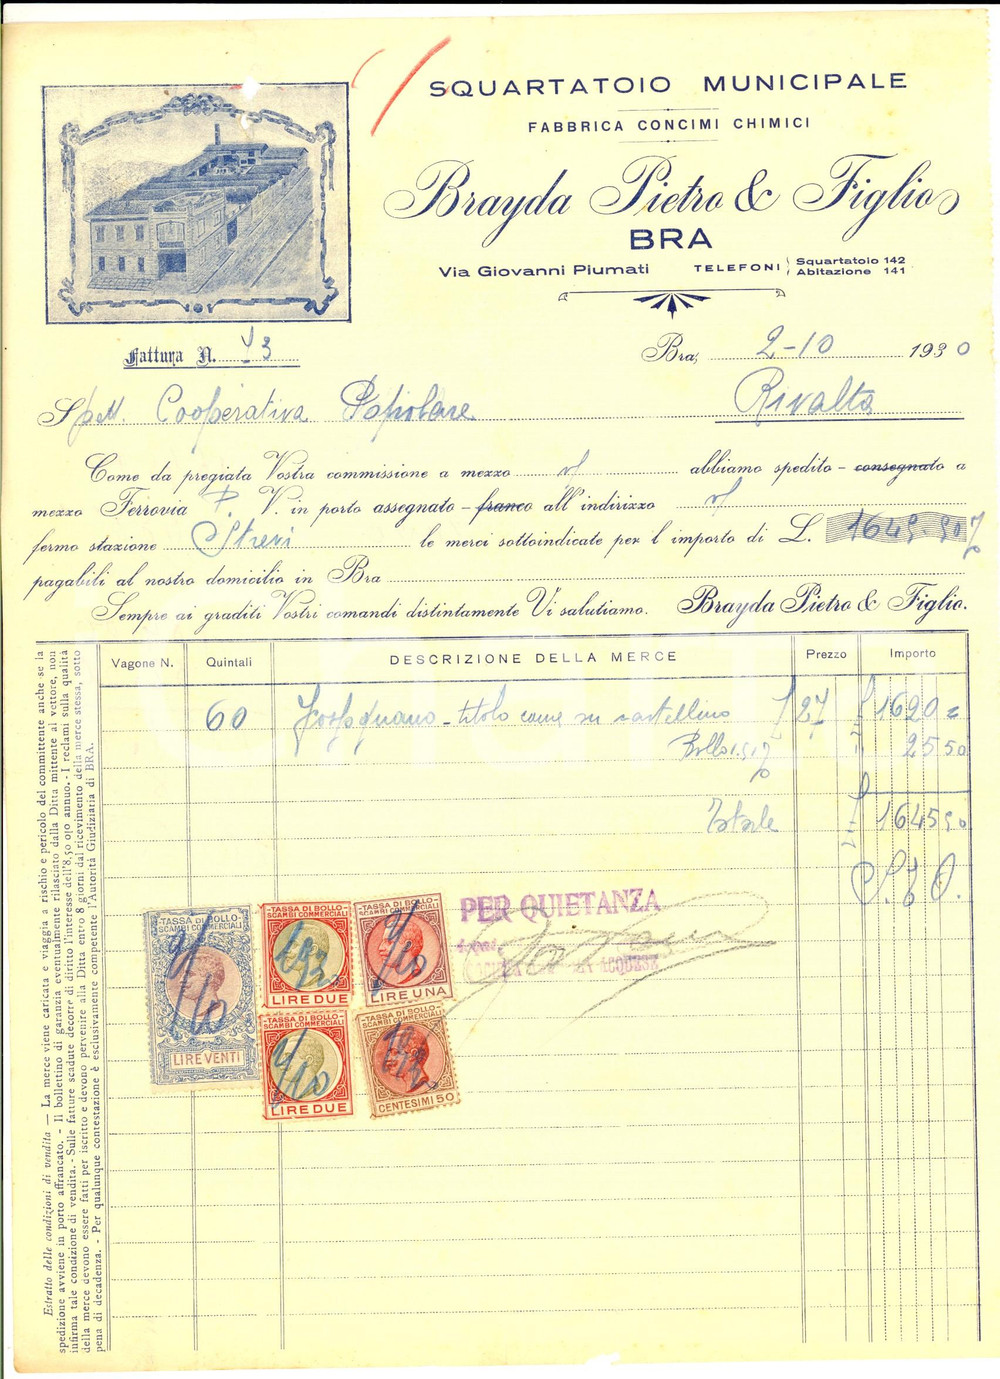 SQUARTATOIO MUNICIPALE
FABBRICA CONCIMI CHIMICI
Brayda Pietro & Figlio
BRA
Via Giovanni Piumati TELEFONI Squartatoio 142
Abitazione 141
Fattura N. 43
Bra, 2-10 1930
Spett. Cooperativa Popolare Rivalta
Come da pregiata Vostra commissione a mezzo abbiamo spedito - consegnato a
mezzo Ferrovia P. V. in porto assegnato - franco all'indirizzo
fermo stazione Strevi le merci sottoindicate per l'importo di L. 1645,50
pagabili al nostro domicilio in Bra
Sempre ai graditi Vostri comandi distintamente Vi salutiamo. Brayda Pietro & Figlio.
Vagone N. Quintali DESCRIZIONE DELLA MERCE Prezzo Importo
60 Fosfoguano - titolo come su cartellino £ 27 £ 1620=
Bollo 1.5% 25 50
Totale £ 1645 50
S.E O.
PER QUIETANZA
ACQUESE
TASSA DI BOLLO
SCAMBI COMMERCIALI
LIRE VENTI
TASSA DI BOLLO
SCAMBI COMMERCIALI
LIRE DUE
TASSA DI BOLLO
SCAMBI COMMERCIALI
LIRE UNA
TASSA DI BOLLO
SCAMBI COMMERCIALI
LIRE DUE
TASSA DI BOLLO
SCAMBI COMMERCIALI
CENTESIMI 50
Estratto delle condizioni di vendita — La merce viene caricata e viaggia a rischio e pericolo del committente anche se la
spedizione avviene in porto affrancato. - Il bollettino di garanzia eventualmente rilasciato dalla Ditta mittente al vettore, non
infirma tale condizione di vendita. - Sulle fatture scadute decorre di diritto l'interesse dell'8,50 o|o annuo. - I reclami sulla qualità
della merce devono essere fatti per iscritto e devono pervenire alla Ditta entro 8 giorni dal ricevimento della merce stessa, sotto
pena di decadenza. - Per qualunque contestazione è esclusivamente competente l'Autorità Giudiziaria di BRA.